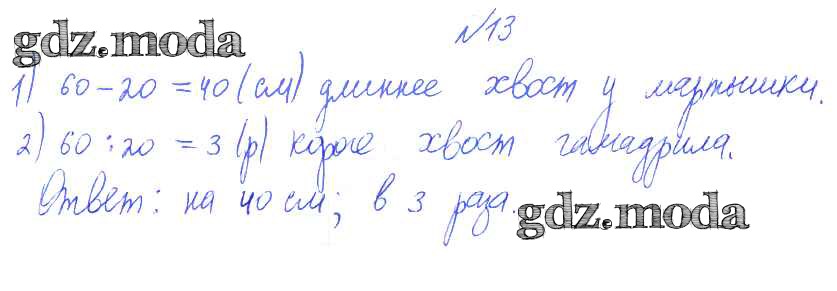 №13
gdz.moda
1) 60 – 20 = 40 (см) длиннее хвост у мартышки.
2) 60 : 20 = 3 (р) короче хвост гамадрила.
Ответ: на 40 см; в 3 раза.
gdz.moda